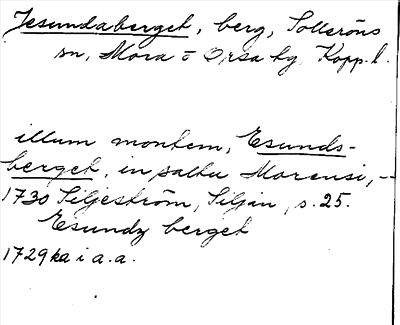 Jesundaberget, berg, Solleröns
sn, Mora o Orsa tg. Kopp. l.
illum montem, Esunds-
berget, in saltu Morensi, --
1730 Siljeström, Siljan, s. 25.
Esundz berget
1729 ka i a. a.